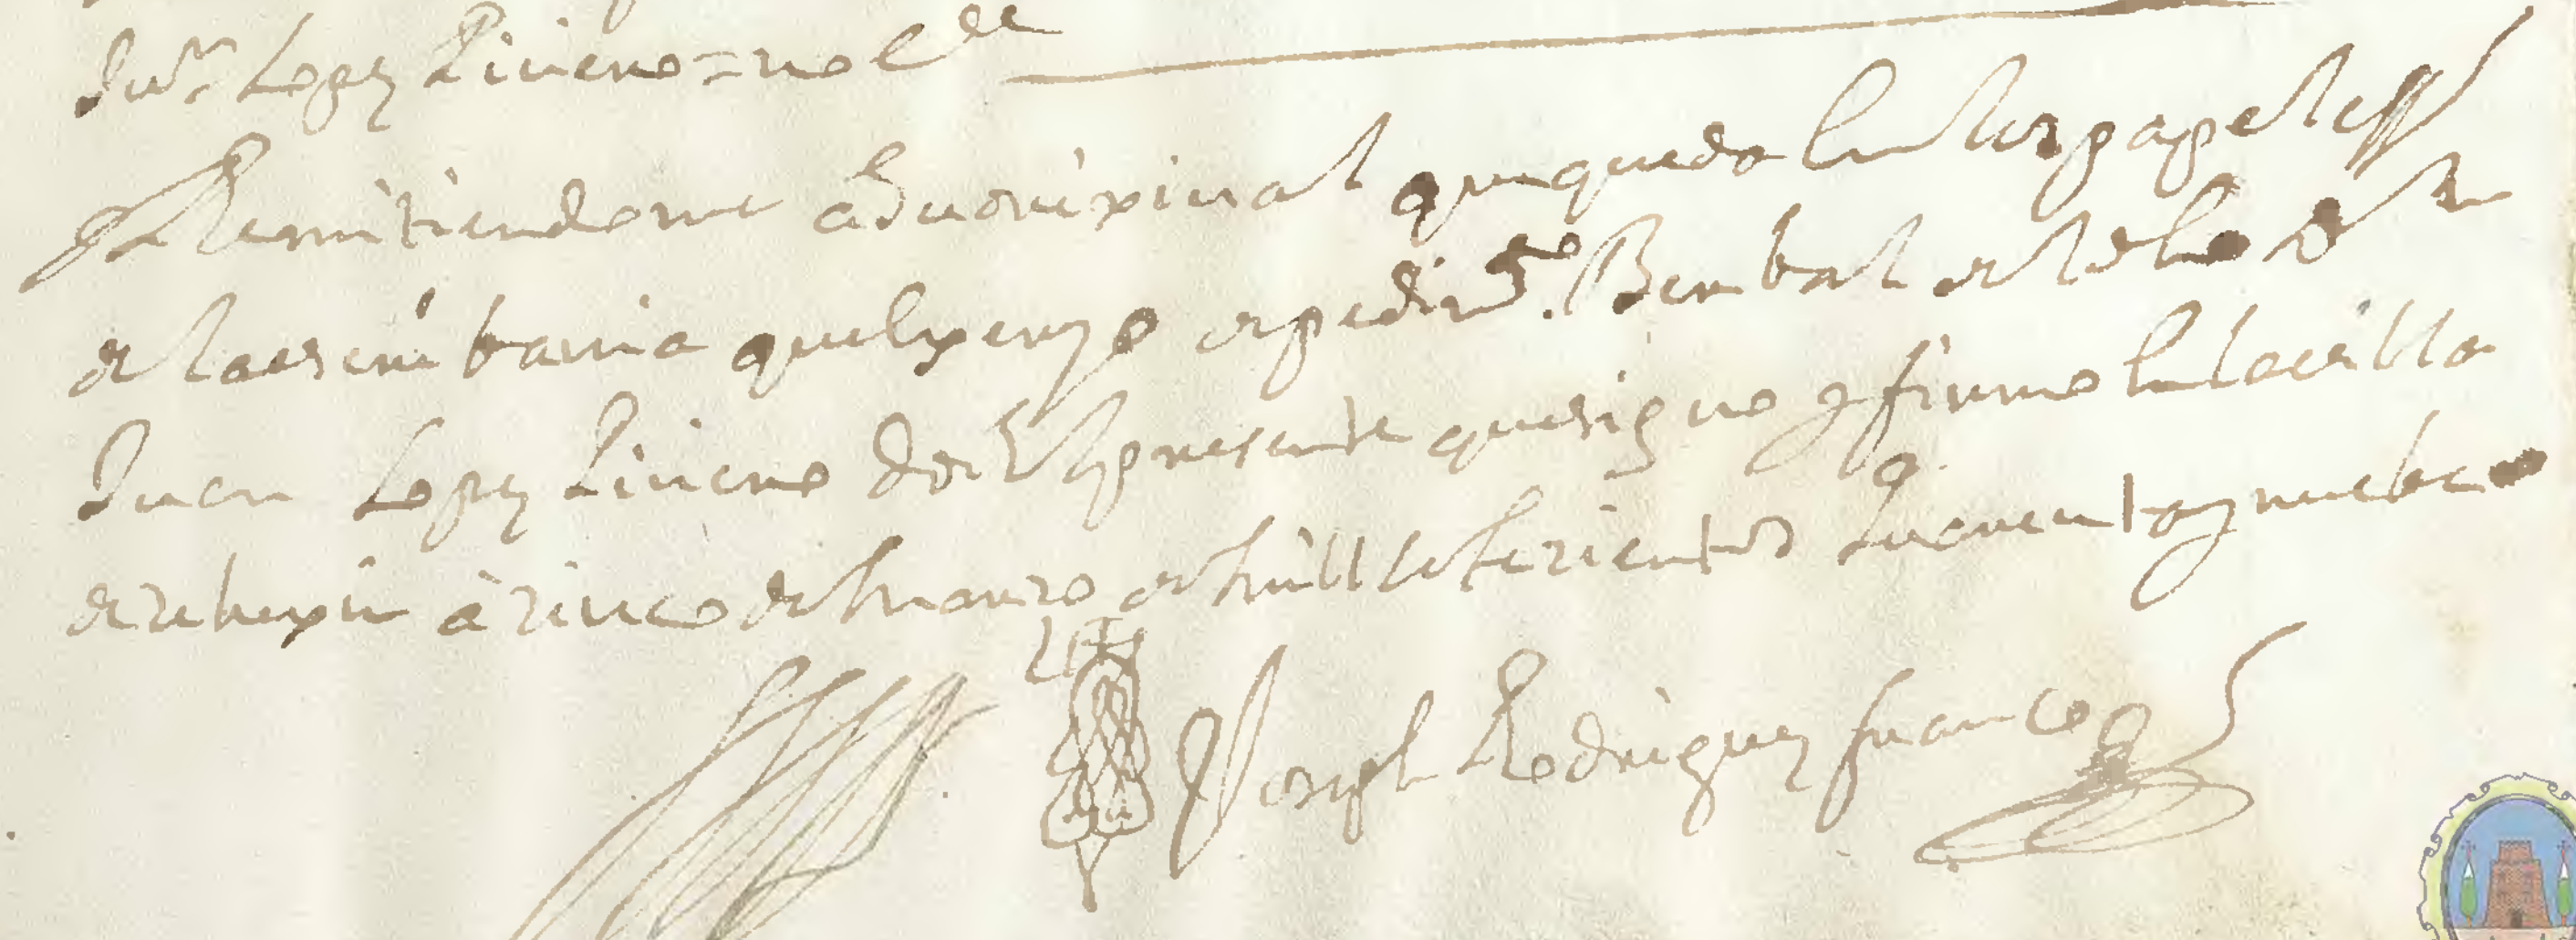 Juº Lopez Piñero = no Vale
Y Remitiendome a Su orixinal que queda En los papeles
de la escribania que exerzo de pedimtº Berbal del dho Dn
Juan Lopez Piñero doi El presente que signo y firmo En la villa
de zehexin à zinco de Marzo de Mill setezientos quarenta y nuebe
Joseph Rodriguez Franco